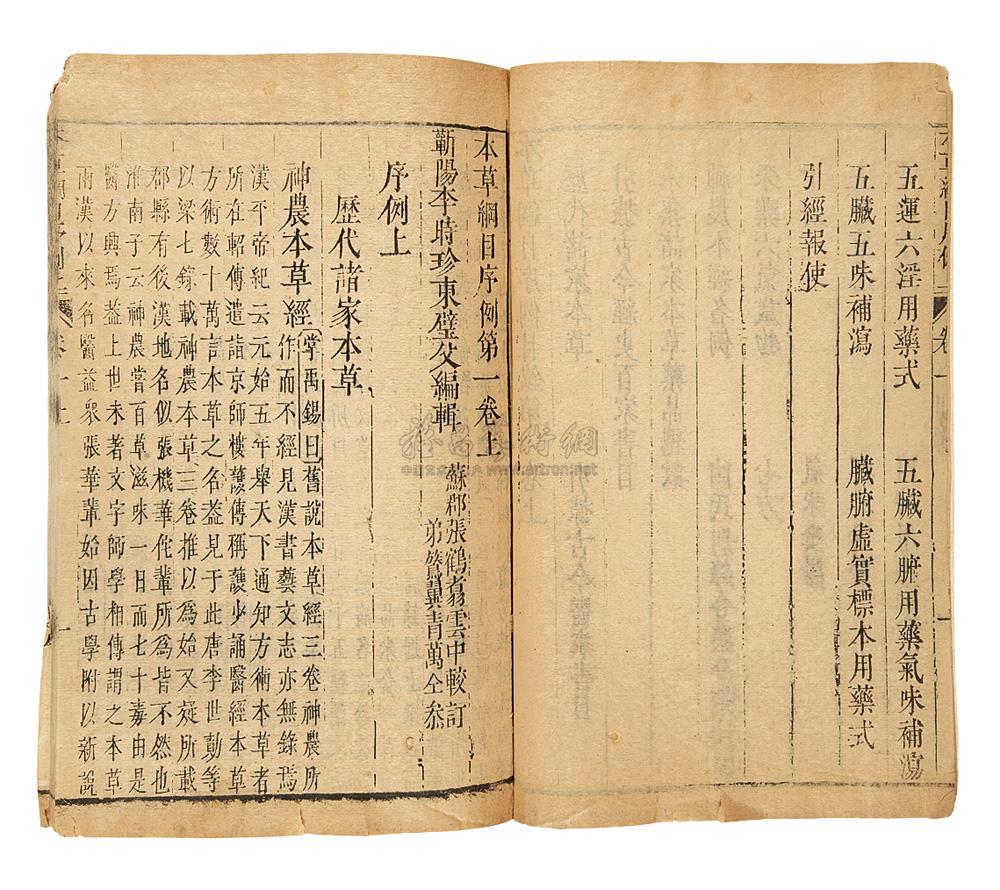 五運六淫用藥式 五臟六腑用藥氣味補瀉
五臟五味補瀉 臟腑虛實標本用藥式
引經報使
本草綱目序例第一卷上
蘄陽李時珍東璧父編輯 蘇郡張鶴翥雲中較訂
弟 翼青萬仝叅
序例上
歷代諸家本草
神農本草經 掌禹錫曰舊說本草經三卷神農所
作而不經見漢書藝文志亦無錄焉
漢平帝紀云元始五年舉天下通知方術本草者
所在軺傳遣詣京師樓護傳稱護少誦醫經本草
方術數十萬言本草之名葢見于此唐李世勣等
以梁七錄載神農本草三卷推以為始又疑所載
郡縣有後漢地名似張機華佗輩所為皆不然也
淮南子云神農嘗百草滋味一日而七十毒由是
醫方興焉葢上世未著文字師學相傳謂之本草
兩漢以來名醫益衆張華輩始因古學附以新說
雅昌藝術網
www.artron.net